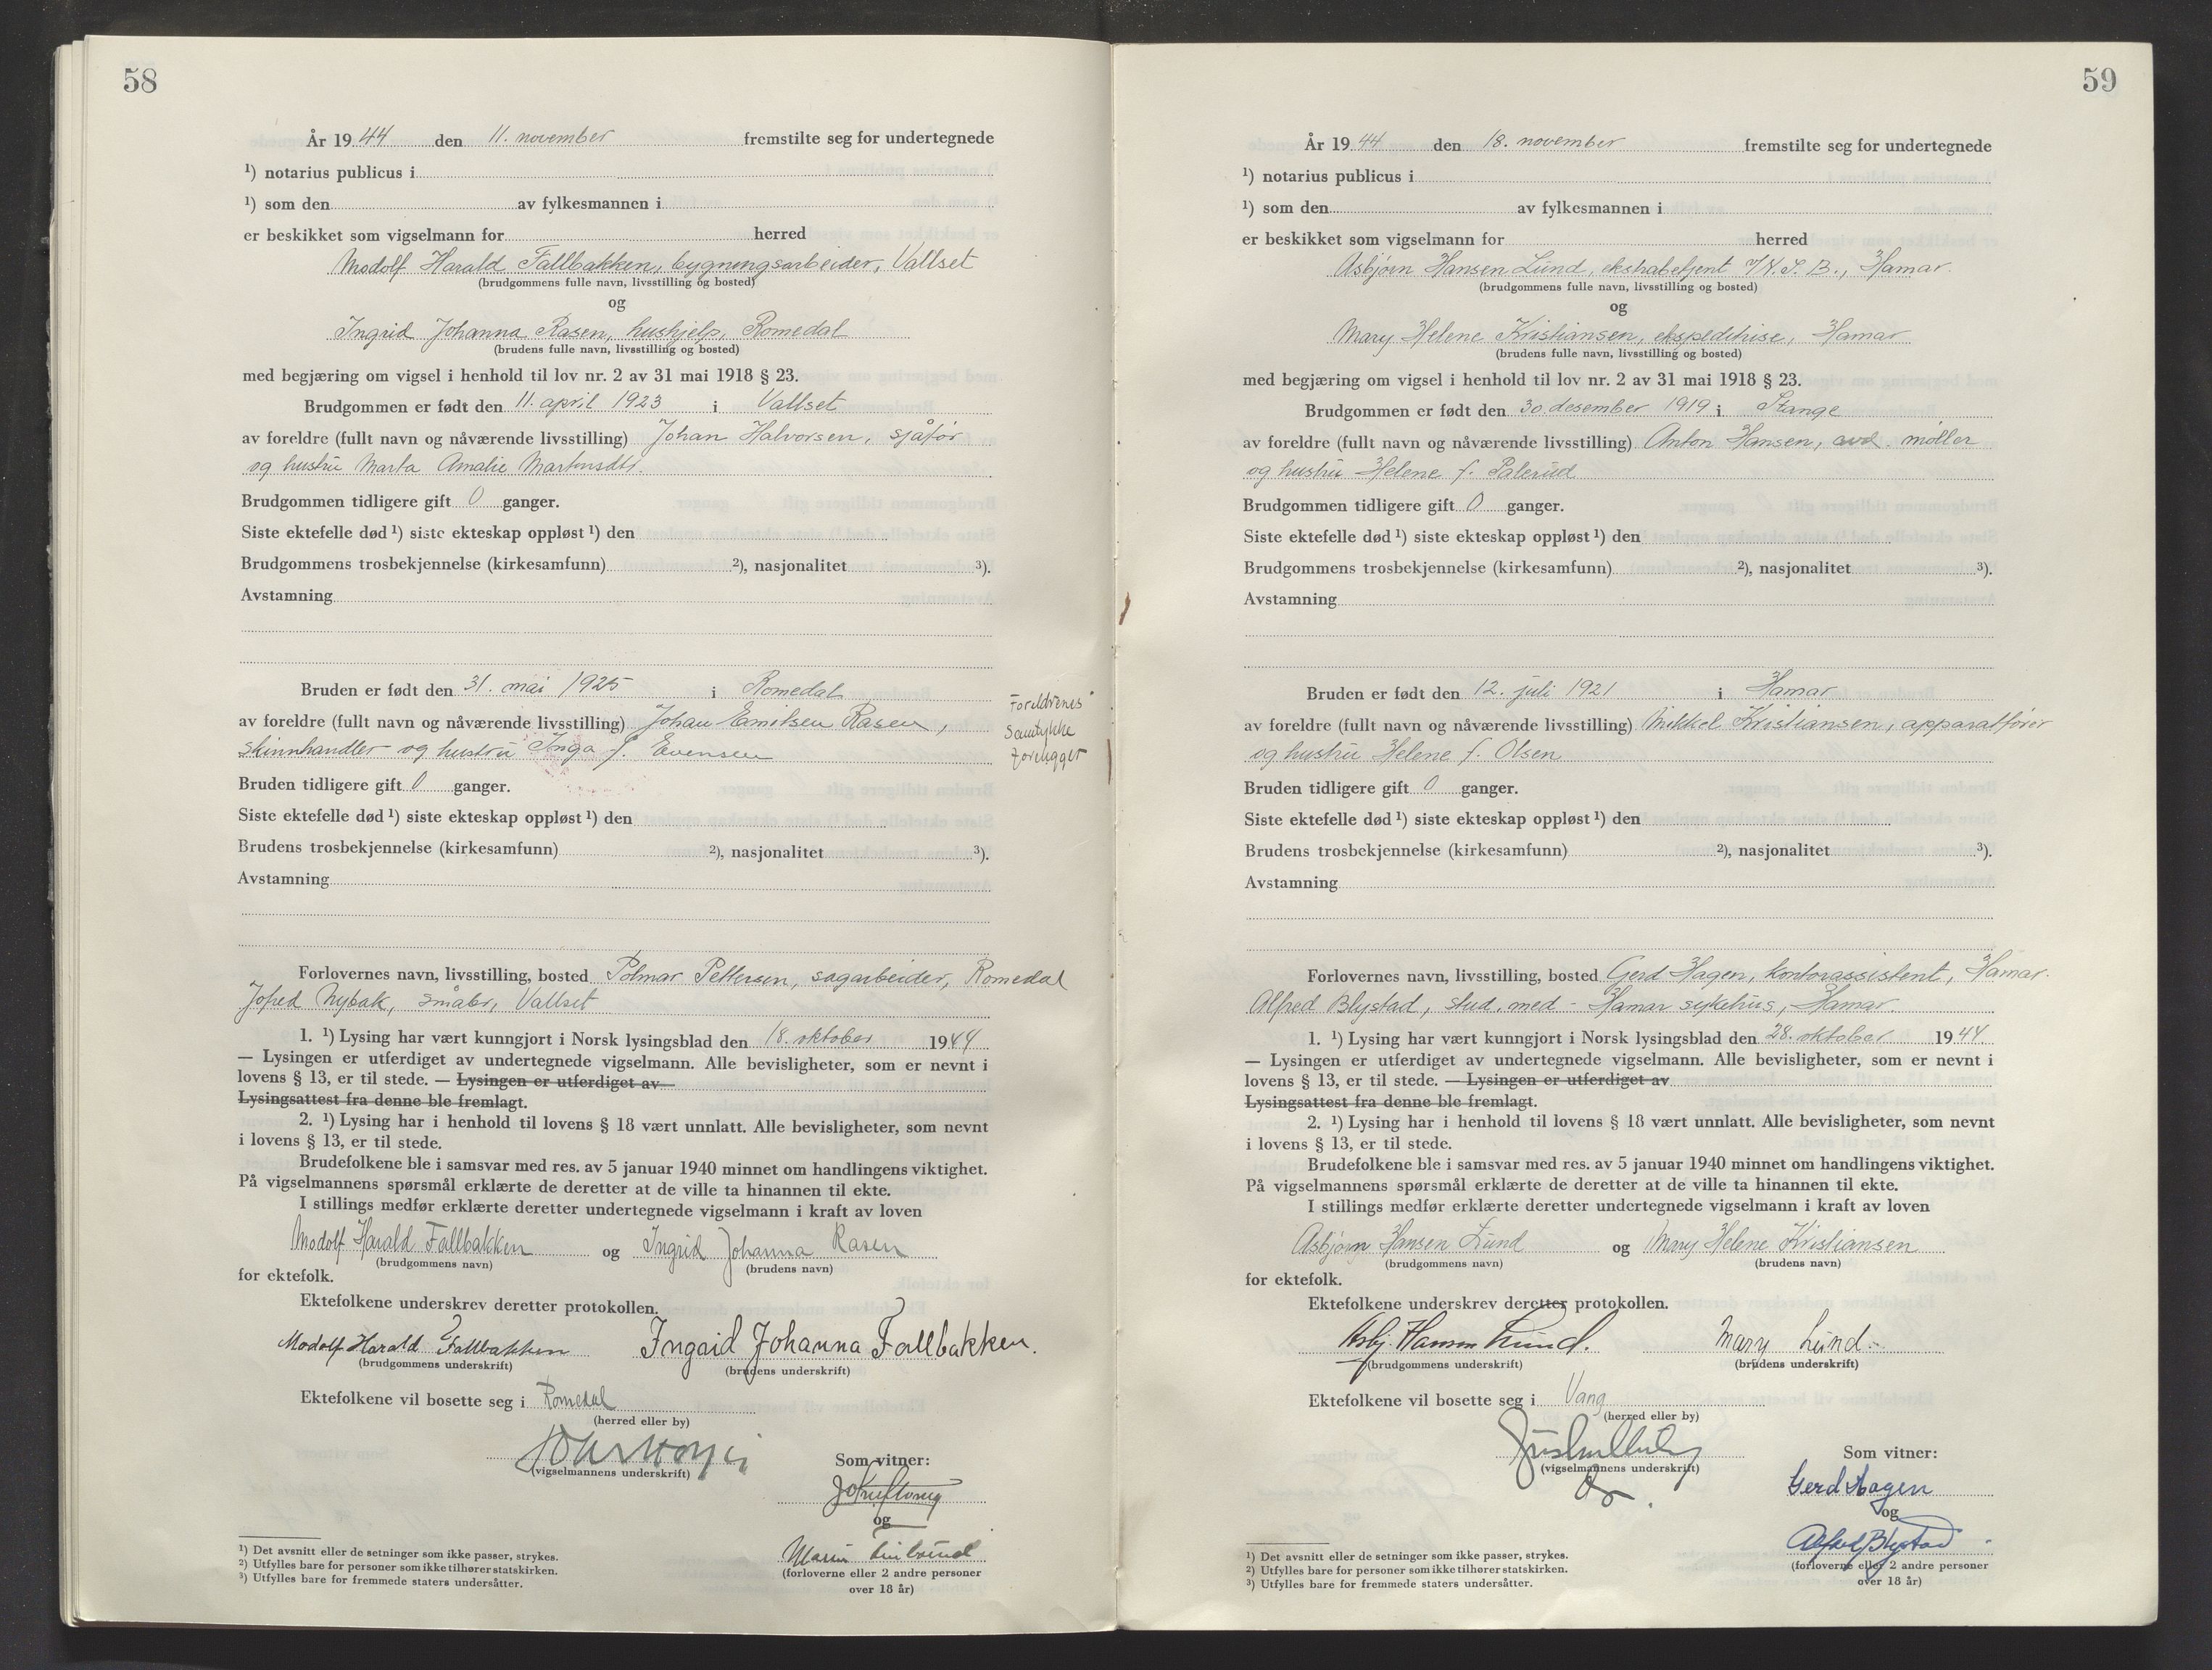 58
År 1944 den 11. november fremstilte seg for undertegnede
¹) notarius publicus i
¹) som den av fylkesmannen i
er beskikket som vigselmann for herred
Modolf Harald Fallbakken, bygningsarbeider, Vallset
(brudgommens fulle navn, livsstilling og bosted)
og
Ingrid Johanna Rasen, hushjelp, Romedal
(brudens fulle navn, livsstilling og bosted)
med begjæring om vigsel i henhold til lov nr. 2 av 31 mai 1918 § 23.
Brudgommen er født den 11. april 1923 i Vallset
av foreldre (fullt navn og nåværende livsstilling) Johan Halvorsen, sjåfør
og hustru Marta Amalie Martinsdtr.
Brudgommen tidligere gift 0 ganger.
Siste ektefelle død ¹) siste ekteskap oppløst ¹) den
Brudgommens trosbekjennelse (kirkesamfunn) ²), nasjonalitet ³).
Avstamning
Bruden er født den 31. mai 1925 i Romedal
av foreldre (fullt navn og nåværende livsstilling) Johan Emilsen Rasen,
skinnhandler og hustru Inga f. Evensen
Foreldrenes
samtykke
foreligger
Bruden tidligere gift 0 ganger.
Siste ektefelle død ¹) siste ekteskap oppløst ¹) den
Brudens trosbekjennelse (kirkesamfunn) ²), nasjonalitet ³).
Avstamning
Forlovernes navn, livsstilling, bosted Polmar Pettersen, sagarbeider, Romedal
Jofred Nybak, småbr, Vallset
1. ¹) Lysing har vært kunngjort i Norsk lysingsblad den 18. oktober 1944
— Lysingen er utferdiget av undertegnede vigselmann. Alle bevisligheter, som er nevnt i
lovens § 13, er til stede. — Lysingen er utferdiget av
Lysingsattest fra denne ble fremlagt.
2. ¹) Lysing har i henhold til lovens § 18 vært unnlatt. Alle bevisligheter, som nevnt
i lovens § 13, er til stede.
Brudefolkene ble i samsvar med res. av 5 januar 1940 minnet om handlingens viktighet.
På vigselmannens spørsmål erklærte de deretter at de ville ta hinannen til ekte.
I stillings medfør erklærte deretter undertegnede vigselmann i kraft av loven
Modolf Harald Fallbakken og Ingrid Johanna Rasen
(brudgommens navn) (brudens navn)
for ektefolk.
Ektefolkene underskrev deretter protokollen.
Modolf Harald Fallbakken Ingrid Johanna Fallbakken.
(brudgommens underskrift) (brudens underskrift)
Ektefolkene vil bosette seg i Romedal
(herred eller by)
(vigselmannens underskrift)
Som vitner:
og
(forloverne eller 2 andre personer
over 18 år)
¹) Det avsnitt eller de setninger som ikke passer, strykes.
²) Utfylles bare for personer som ikke tilhører statskirken.
³) Utfylles bare for fremmede staters undersåtter.
59
År 1944 den 18. november fremstilte seg for undertegnede
¹) notarius publicus i
¹) som den av fylkesmannen i
er beskikket som vigselmann for herred
Asbjørn Hansen Lund, ekstrabetjent v/N.S.B., Hamar.
(brudgommens fulle navn, livsstilling og bosted)
og
Mary Helene Kristiansen, ekspeditrise, Hamar
(brudens fulle navn, livsstilling og bosted)
med begjæring om vigsel i henhold til lov nr. 2 av 31 mai 1918 § 23.
Brudgommen er født den 30. desember 1919 i Stange
av foreldre (fullt navn og nåværende livsstilling) Anton Hansen, avd. møller
og hustru Helene f. Palerud
Brudgommen tidligere gift 0 ganger.
Siste ektefelle død ¹) siste ekteskap oppløst ¹) den
Brudgommens trosbekjennelse (kirkesamfunn) ²), nasjonalitet ³).
Avstamning
Bruden er født den 12. juli 1921 i Hamar
av foreldre (fullt navn og nåværende livsstilling) Mikkel Kristiansen, apparatfører
og hustru Helene f. Olsen
Bruden tidligere gift 0 ganger.
Siste ektefelle død ¹) siste ekteskap oppløst ¹) den
Brudens trosbekjennelse (kirkesamfunn) ²), nasjonalitet ³).
Avstamning
Forlovernes navn, livsstilling, bosted Gerd Hagen, kontorassistent, Hamar.
Alfred Blystad, stud. med - Hamar sykehus, Hamar.
1. ¹) Lysing har vært kunngjort i Norsk lysingsblad den 28. oktober 1944.
— Lysingen er utferdiget av undertegnede vigselmann. Alle bevisligheter, som er nevnt i
lovens § 13, er til stede. — Lysingen er utferdiget av
Lysingsattest fra denne ble fremlagt.
2. ¹) Lysing har i henhold til lovens § 18 vært unnlatt. Alle bevisligheter, som nevnt
i lovens § 13, er til stede.
Brudefolkene ble i samsvar med res. av 5 januar 1940 minnet om handlingens viktighet.
På vigselmannens spørsmål erklærte de deretter at de ville ta hinannen til ekte.
I stillings medfør erklærte deretter undertegnede vigselmann i kraft av loven
Asbjørn Hansen Lund og Mary Helene Kristiansen
(brudgommens navn) (brudens navn)
for ektefolk.
Ektefolkene underskrev deretter protokollen.
Asbj. Hansen Lund. Mary Lund.-
(brudgommens underskrift) (brudens underskrift)
Ektefolkene vil bosette seg i Vang
(herred eller by)
(vigselmannens underskrift)
Som vitner:
Gerd Hagen
og
Alfred Blystad
(forloverne eller 2 andre personer
over 18 år)
¹) Det avsnitt eller de setninger som ikke passer, strykes.
²) Utfylles bare for personer som ikke tilhører statskirken.
³) Utfylles bare for fremmede staters undersåtter.